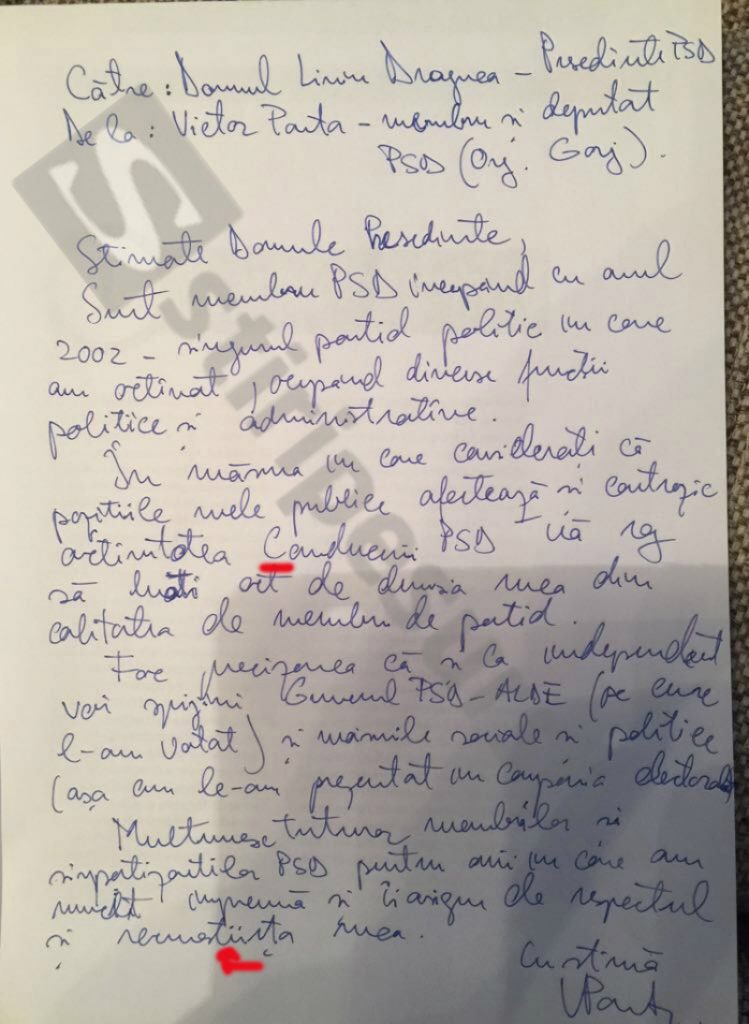 Către : Domnul Liviu Dragnea – Presedinte PSD
De la : Victor Ponta – membru si deputat
PSD (Orj. Gorj).
Stimate Domnule Presedinte,
Sunt membru PSD incepand cu anul
2002 – singurul partid politic in care
am activat, ocupand diverse functii
politice si administrative.
În măsura in care considerati că
pozitiile mele publice afectează si contrazic
activitatea Conducerii PSD vă rog
să luati act de demisia mea din
calitatea de membru de partid.
Fac precizarea că si ca independent
voi sprijini Guvernul PSD-ALDE (pe care
l-am votat) si măsurile sociale si politice
(așa cum le-am prezentat in campania electorală)
Multumesc tuturor membrilor si
simpatizantilor PSD pentru anii in care am
muncit impreună si îi asigur de respectul
si recunostiința mea.
Cu stimă
VPonta
Stiripesurse